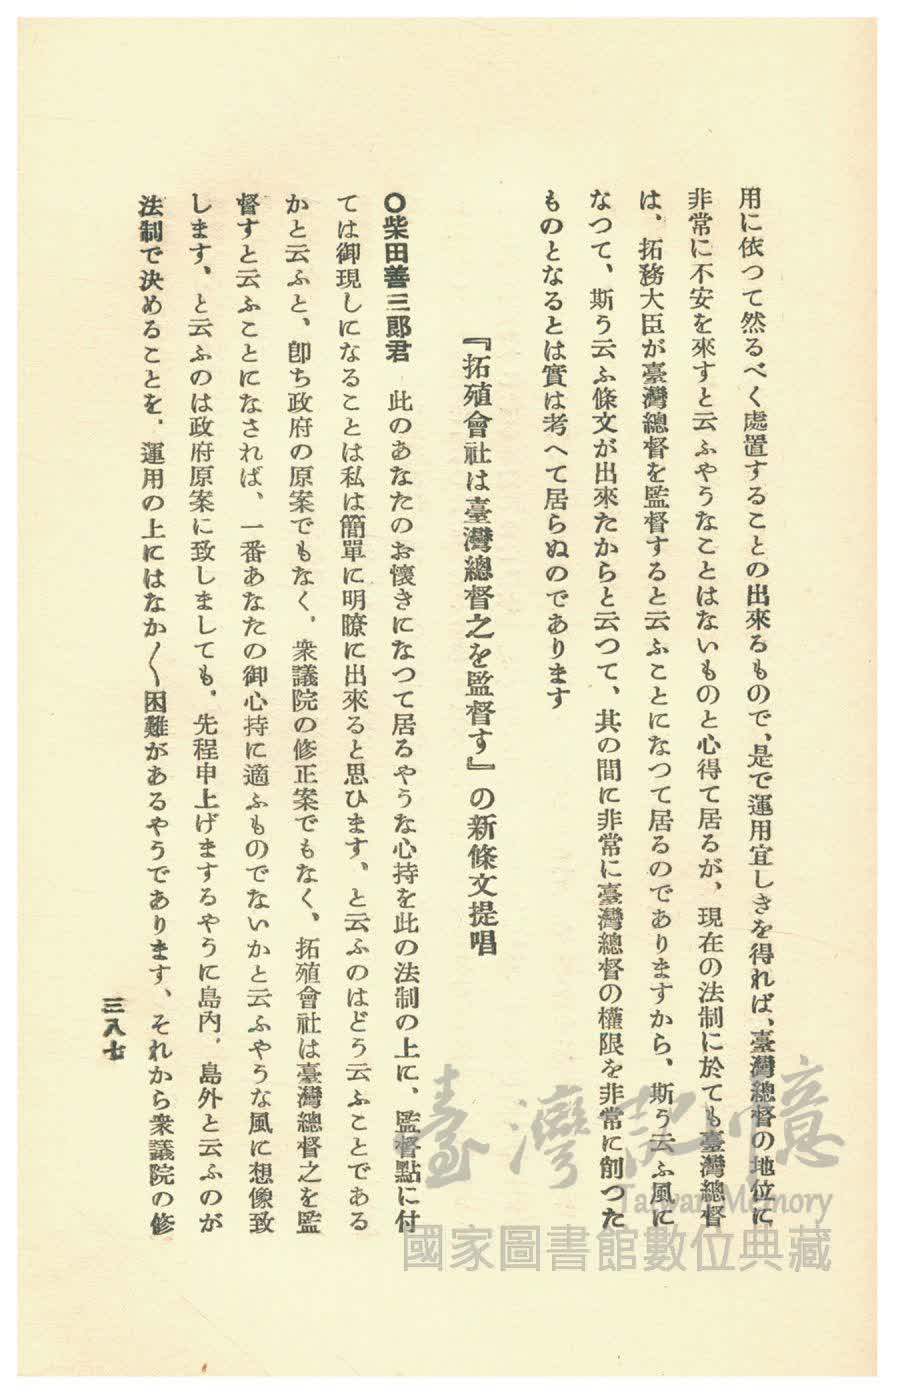 用に依つて然るべく處置することの出來るもので、是で運用宜しきを得れば、臺灣總督の地位に
非常に不安を來すと云ふやうなことはないものと心得て居るが、現在の法制に於ても臺灣總督
は、拓務大臣が臺灣總督を監督すると云ふことになつて居るのでありますから、斯う云ふ風に
なつて、斯う云ふ條文が出來たからと云つて、其の間に非常に臺灣總督の權限を非常に削つた
ものとなるとは實は考へて居らぬのであります
『拓殖會社は臺灣總督之を監督す』の新條文提唱
〇柴田善三郞君　此のあなたのお懷きになつて居るやうな心持を此の法制の上に、監督點に付
ては御現しになることは私は簡單に明瞭に出來ると思ひます、と云ふのはどう云ふことである
かと云ふと、卽ち政府の原案でもなく、衆議院の修正案でもなく、拓殖會社は臺灣總督之を監
督すと云ふことになされば、一番あなたの御心持に適ふものでないかと云ふやうな風に想像致
します、と云ふのは政府原案に致しましても、先程申上げまするやうに島內、島外と云ふのが
法制で決めることを、運用の上にはなか〳〵困難があるやうであります、それから衆議院の修
三八七
臺灣記憶
Taiwan Memory
國家圖書館數位典藏